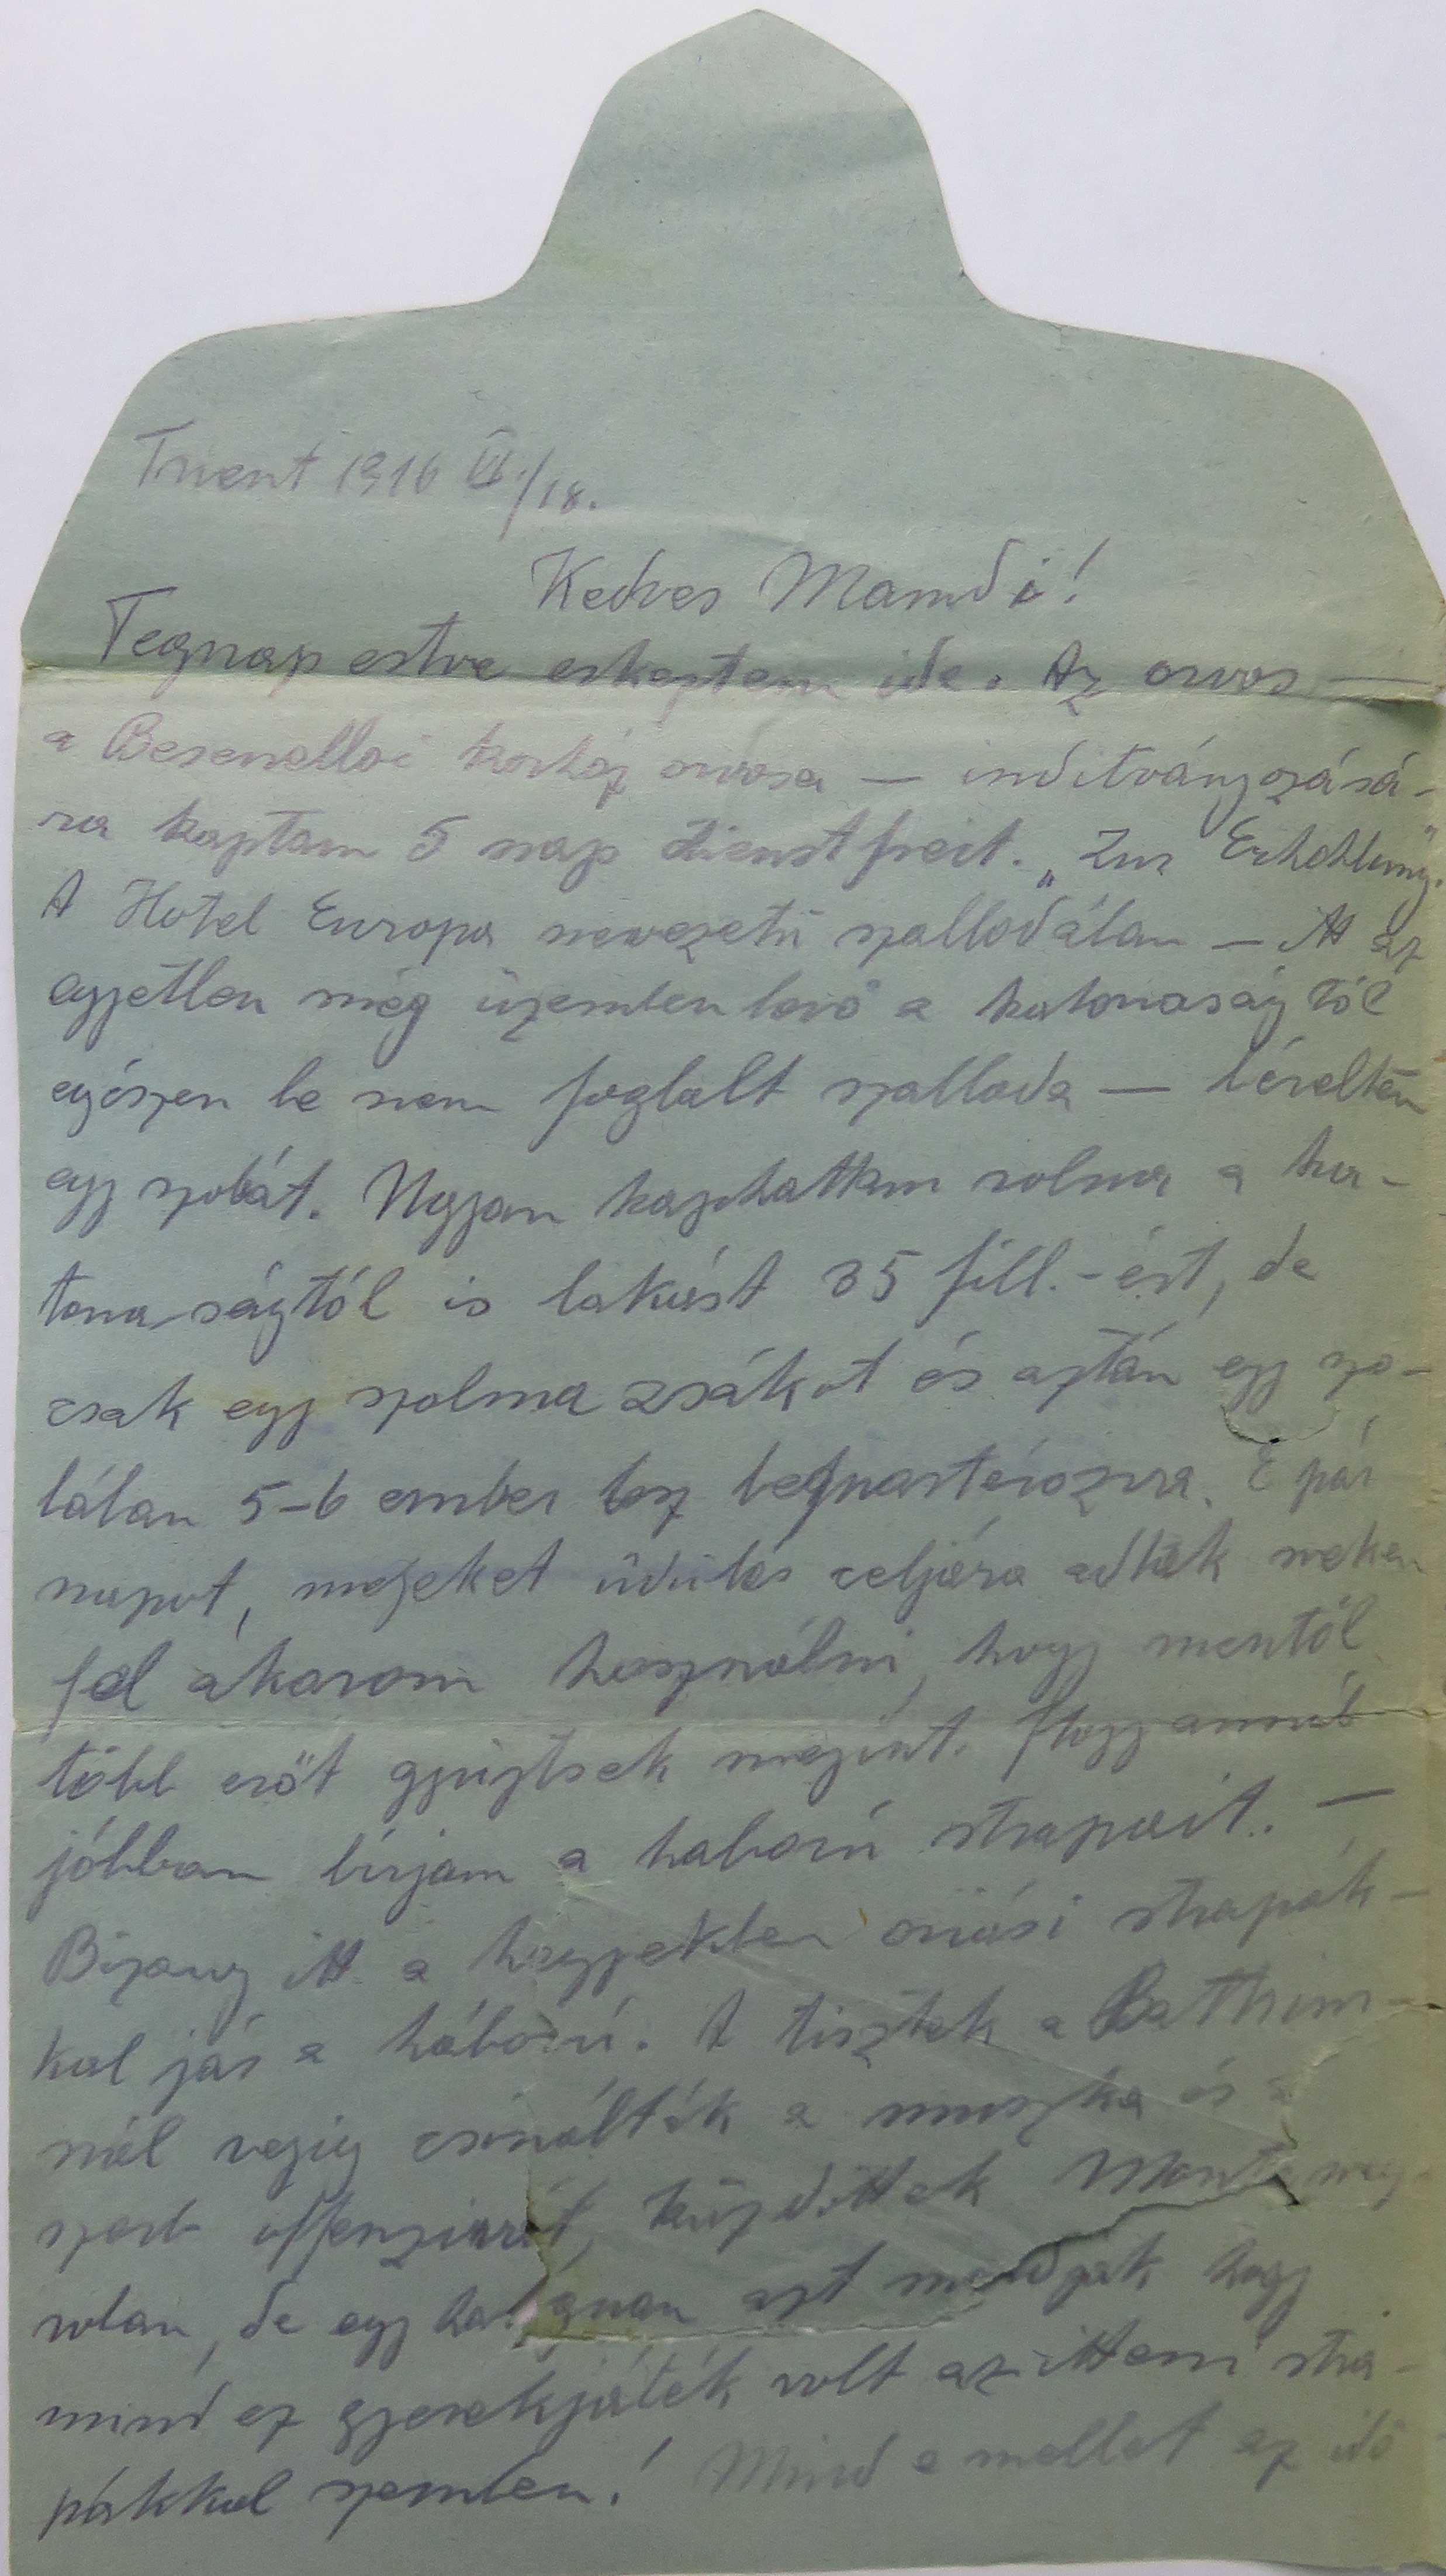 Trient 1916 VI./18.
Kedves Mamdi!
Tegnap estve erkeztem ide. Az orvos —
a Besenelloi korház orvosa — inditványozásá-
ra kaptam 5 nap dienstfreit. „Zur Erhohlung."
A Hotel Europa nevezetü szallodálan — itt az
egyetlen még üzemben levő a katonaság tól
egészen be nem foglalt szalloda — béreltem
egy szobát. Ugyan kaphattam volna a ka-
tona-ságtól is lakást 35 fill.-ért, de
csak egy szalma zsákot és aztán egy szo-
bában 5-6 ember lesz beqvartérozva. E pár
napot, melyeket üdülés celjára adtak nekem
fel akarom használni, hogy mentől
több erőt gyüjtsek megint. Hogy annál
jóbban birjam a haború strapait. —
Bizony itt a hegyekben oriási strapák-
kal jár a háború. A tisztek a Bathion-
nál vegig csinálták a muszka és a
szerb offenzivát, küzdöttek Monteneg-
roban, de egy hangon azt mondják hogy
mind ez gyerekjáték volt az itteni stra-
pákkal szemben! Mind e mellet az idő